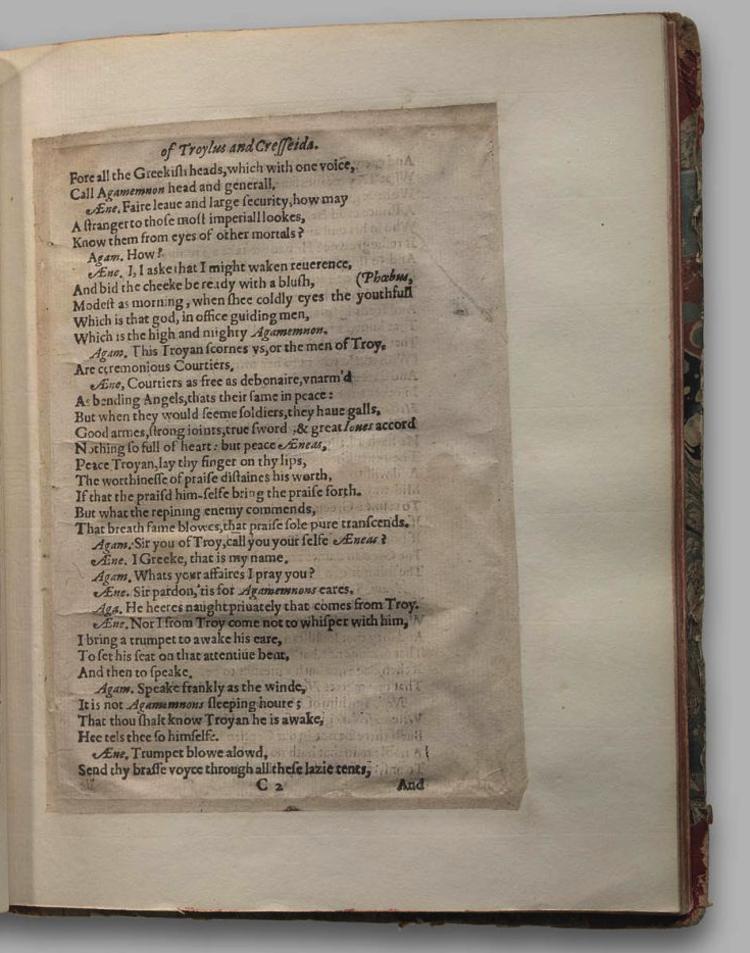 of Troylus and Cresseida.
Fore all the Greekish heads, which with one voice,
Call Agamemnon head and generall.
Æne. Faire leaue and large security, how may
A stranger to those most imperiall lookes,
Know them from eyes of other mortals?
Agam. How?
Æne. I, I aske that I might waken reuerence,
And bid the cheeke be ready with a blush, (Phœbus,
Modest as morning, when shee coldly eyes the youthfull
Which is that god, in office guiding men,
Which is the high and mighty Agamemnon.
Agam. This Troyan scornes vs, or the men of Troy,
Are ceremonious Courtiers.
Æne, Courtiers as free as debonaire, vnarm'd
As bending Angels, thats their fame in peace:
But when they would seeme soldiers, they haue galls,
Good armes, strong ioints, true sword, & great Ioues accord
Nothing so full of heart: but peace Æneas,
Peace Troyan, lay thy finger on thy lips,
The worthinesse of praise distaines his worth,
If that the praisd him-selfe bring the praise forth.
But what the repining enemy commends,
That breath fame blowes, that praise sole pure transcends.
Agam. Sir you of Troy, call you your selfe Æneas?
Æne. I Greeke, that is my name.
Agam. Whats your affaires I pray you?
Æne. Sir pardon, 'tis for Agamemnons eares.
Aga. He heeres naught priuately that comes from Troy.
Æne. Nor I from Troy come not to whisper with him,
I bring a trumpet to awake his eare,
To set his seat on that attentiue bent,
And then to speake.
Agam. Speake frankly as the winde,
It is not Agamemnons sleeping houre;
That thou shalt know Troyan he is awake,
Hee tels thee so himselfe.
Æne, Trumpet blowe alowd,
Send thy brasse voyce through all these lazie tents,
C 2 And